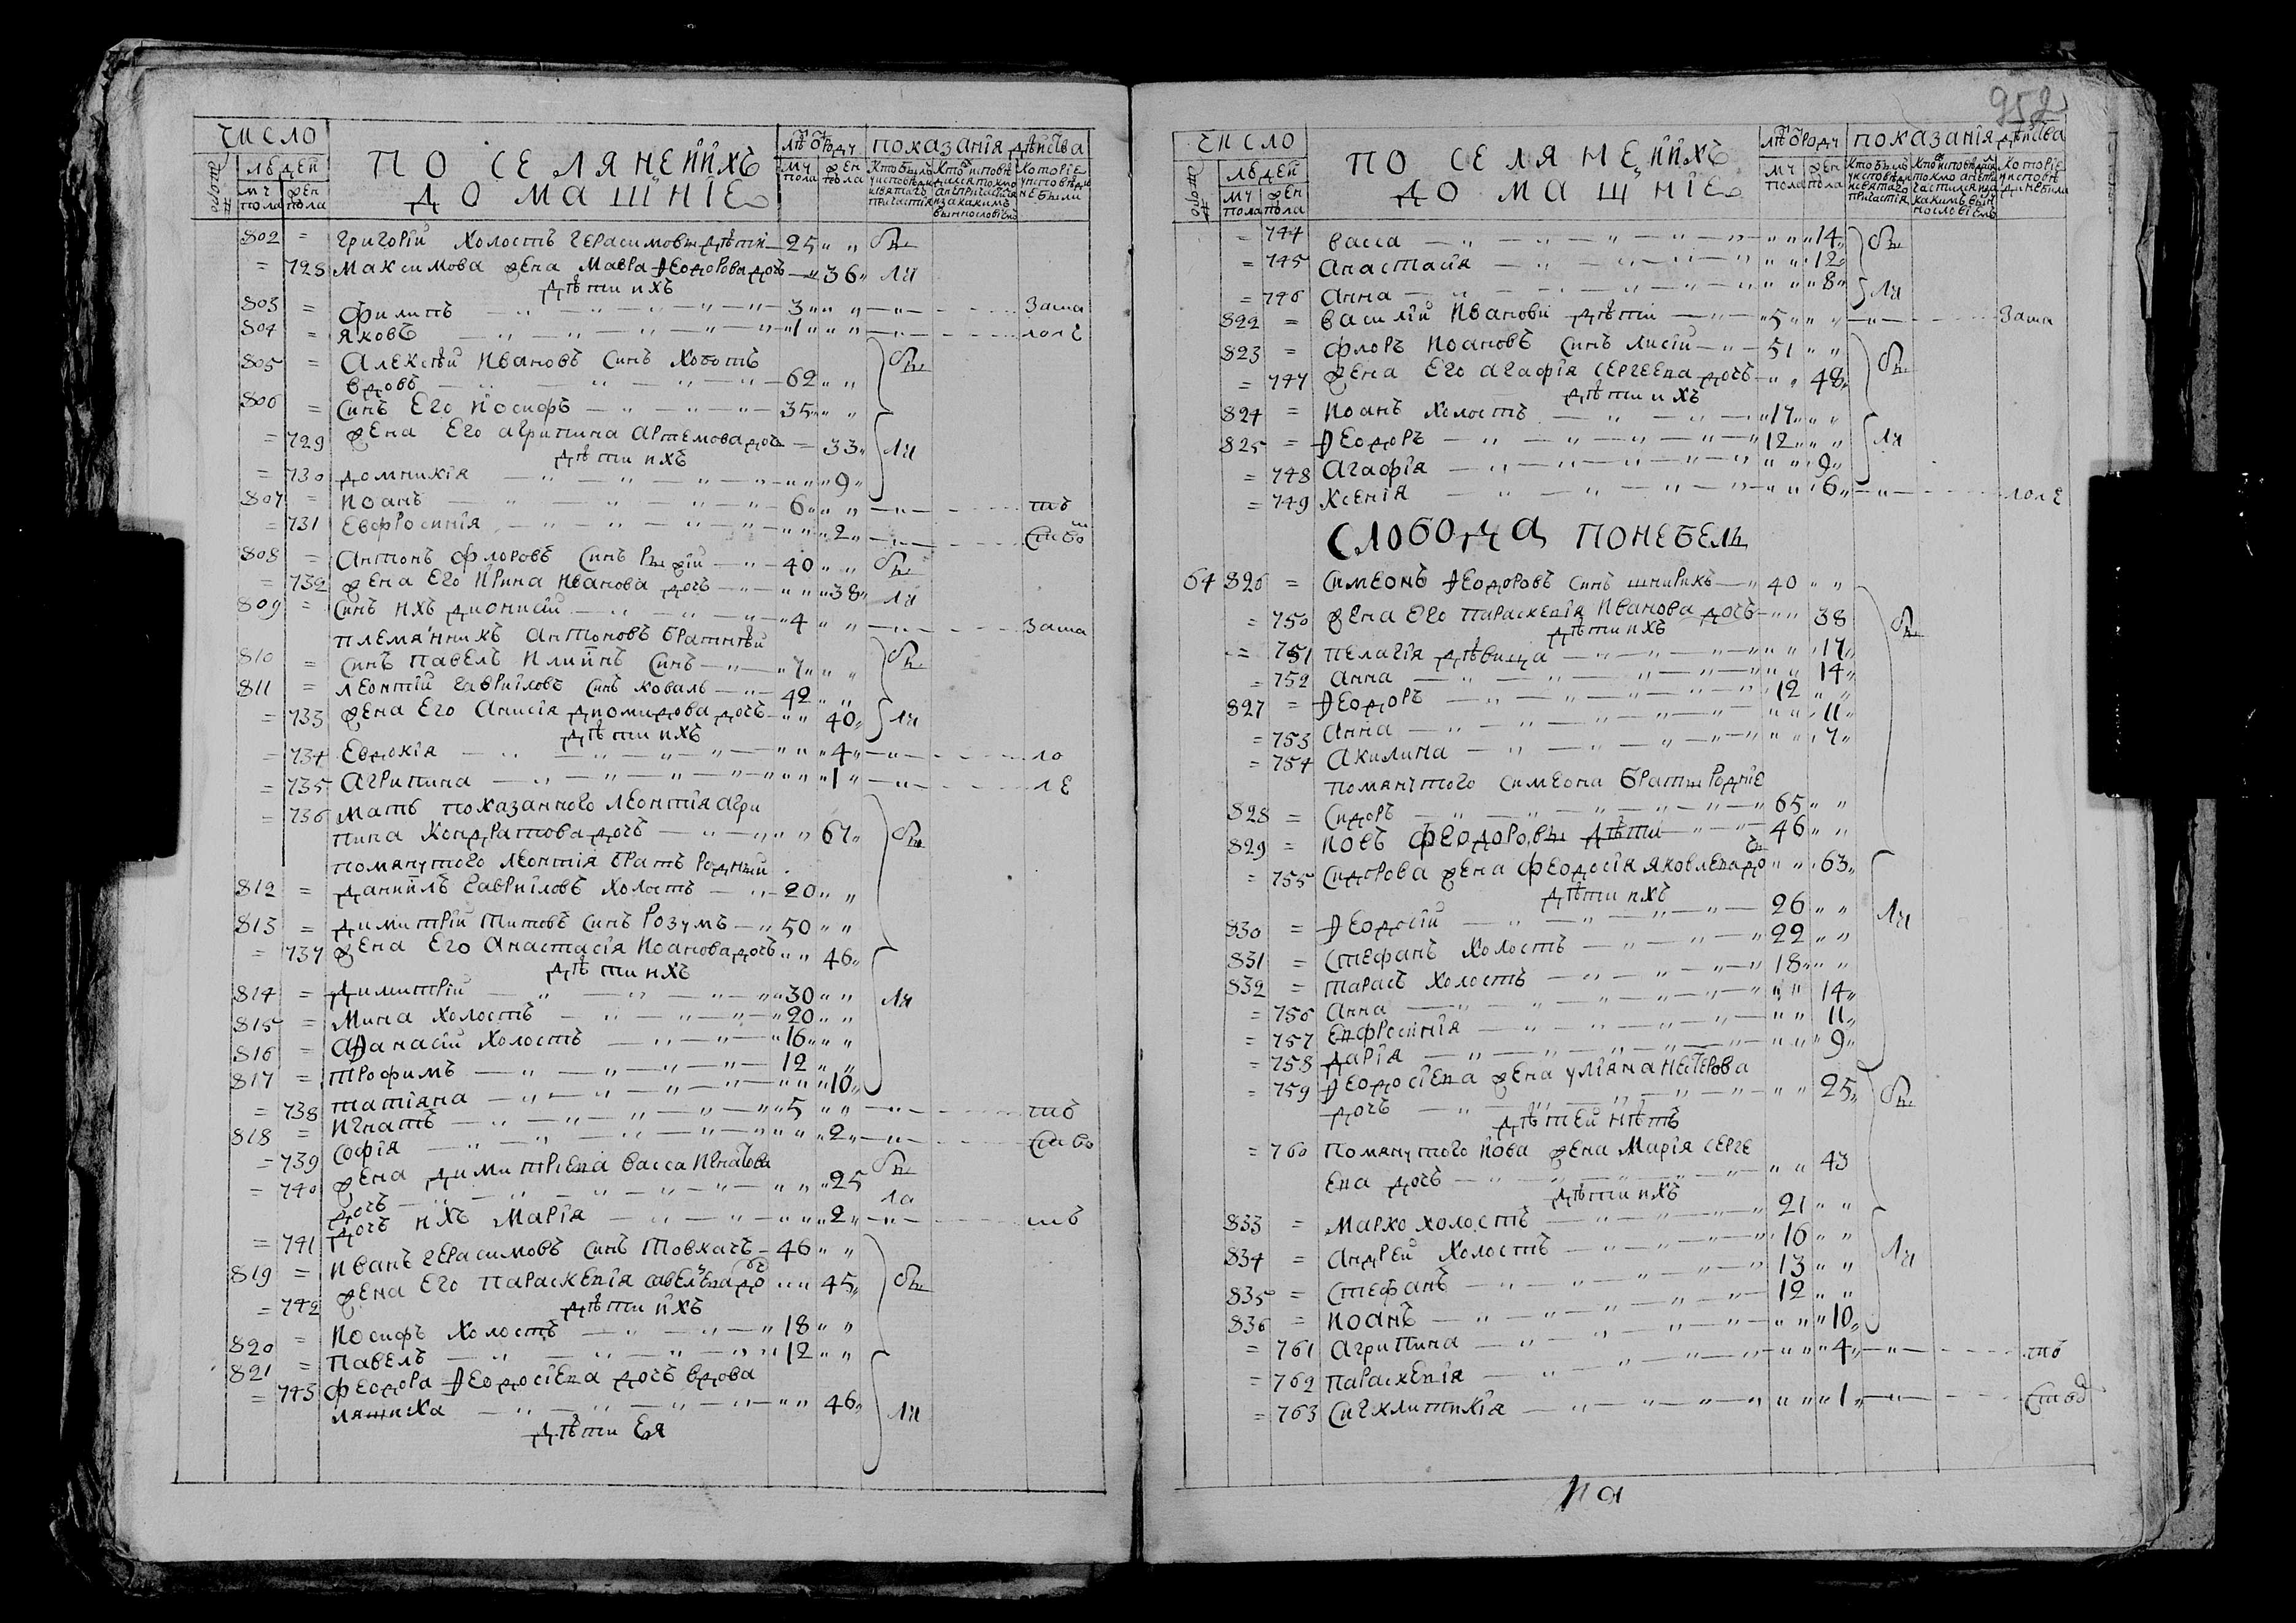 ЧИСЛО
ЛЮДЕЙ
МУ ЖЕН
ПОЛА ПОЛА
ПОСЕЛЯНЕ ИИХЪ
ДОМАШНІЕ
ЛѢТЪ ОРОДУ
МУ ЖЕН
ПОЛА ПОЛА
ПОКАЗАНІЯ ДѢЙСТВА
802 = Григорій Холостъ Герасимовы дѣти 25 бы
= 728 Максимова жена Мавра Ѳеодорова дочь 36 ли
дѣти ихъ
803 = Филипъ 3 Зама
804 = Яковъ 1 лолѣ
805 = Алексѣй Ивановъ синъ Хоботъ бы
вдовъ 62
806 = Синъ Его Іосифъ 35
= 729 жена Его Агрипина Артемова дочь 33 ли
дѣти ихъ
= 730 Домникія 9
807 = Иоанъ 6 тъ
= 731 Евфросинія 2
808 = Антонъ Флоровъ Синъ Рыжій 40 бы
= 732 жена Его Ирина Иванова дочь 38 ли
809 = Синъ ихъ Дионисій 4 Зама
племянникъ Антоновъ братнѣй
810 = Синъ Павелъ Илиинъ Синъ 7 бы
811 = Леонтій Гавріиловъ Синъ коваль 42
= 733 жена Его Анисія Диомидова дочь 40 ли
дѣти ихъ
= 734 Евдокія 4 ло
= 735 Агрипина 1 лѣ
= 736 Мать показанного Леонтія Агри
пина Кондратова дочь 67 бы
помянутого Леонтія братъ родный
812 = Даниилъ Гавріиловъ Холостъ 20
813 = Димитрій Титовъ Синъ Розумъ 50
= 737 жена Его Анастасія Иоанова дочь 46
дѣти ихъ
814 = Димитрій 30 ли
815 = Мина Холостъ 20
816 = Аѳанасій Холостъ 16
817 = Трофимъ 12
= 738 Татіана 10
818 = Игнатъ 5 тъ
= 739 Софія 2
= 740 жена Димитріева Васса Игнатова бы
дочь 25 ло
= 741 дочь ихъ Марія 2
819 = Иванъ Герасимовъ Синъ Товкачъ 46
= 742 жена Его Параскевія Савелѣева до 45 бы
дѣти ихъ
820 = Иосифъ Холостъ 18
821 = Павелъ 12
= 743 Феодора Ѳеодосіева дочь вдова
Ляшиха 46 ли
дѣти Ея
952
ЧИСЛО
ЛЮДЕЙ
МУ ЖЕН
ПОЛА ПОЛА
ПОСЕЛЯНЕ ИИХЪ
ДОМАШНІЕ
ЛѢТЪ ОРОДУ
МУ ЖЕН
ПОЛА ПОЛА
ПОКАЗАНІЯ ДѢЙСТВА
= 744 Васса 14 бы
= 745 Анастасія 12
= 746 Анна 8 ли
822 = Василій Ивановы дѣти 5 Зама
823 = Флоръ Иоановъ Синъ Лисій 51
= 747 жена Его Агафія Сергеева дочь 48 бы
дѣти ихъ
824 = Иоанъ Холостъ 17
825 = Ѳеодоръ 12 ли
= 748 Агафія 9
= 749 Ксенія 6 лолѣ
СЛОБОДА ПОНЕБЕЛЬ
64 826 = Симеонъ Ѳеодоровъ синъ шнирикъ 40
= 750 жена Его Параскевія Иванова дочь 38 бы
дѣти ихъ
= 751 Пелагія дѣвица 17
= 752 Анна 14
827 = Ѳеодоръ 12
= 753 Анна 11
= 754 Акилина 7
помянутого Симеона братья родніе
828 = Сидоръ 65
829 = Иовъ Феодоровы дѣти 46
= 755 Сидорова жена Феодосія Яковлева до 63
дѣти ихъ
830 = Ѳеодосій 26 ли
831 = Стефанъ Холостъ 22
832 = Тарасъ Холостъ 18
= 756 Анна 14
= 757 Евфросинія 11
= 758 Дарія 9
= 759 Ѳеодосіева жена Уліяна Нестерова
дочь 25 бы
дѣтей нѣтъ
= 760 Помянутого Иова жена Марія Серге
ева дочь 43
дѣти ихъ
833 = Марко холостъ 21
834 = Андрей Холостъ 16 ли
835 = Стефанъ 13
836 = Иоанъ 12
= 761 Агрипина 10
= 762 Параскевія 4 тъ
= 763 Сигклитикія 1